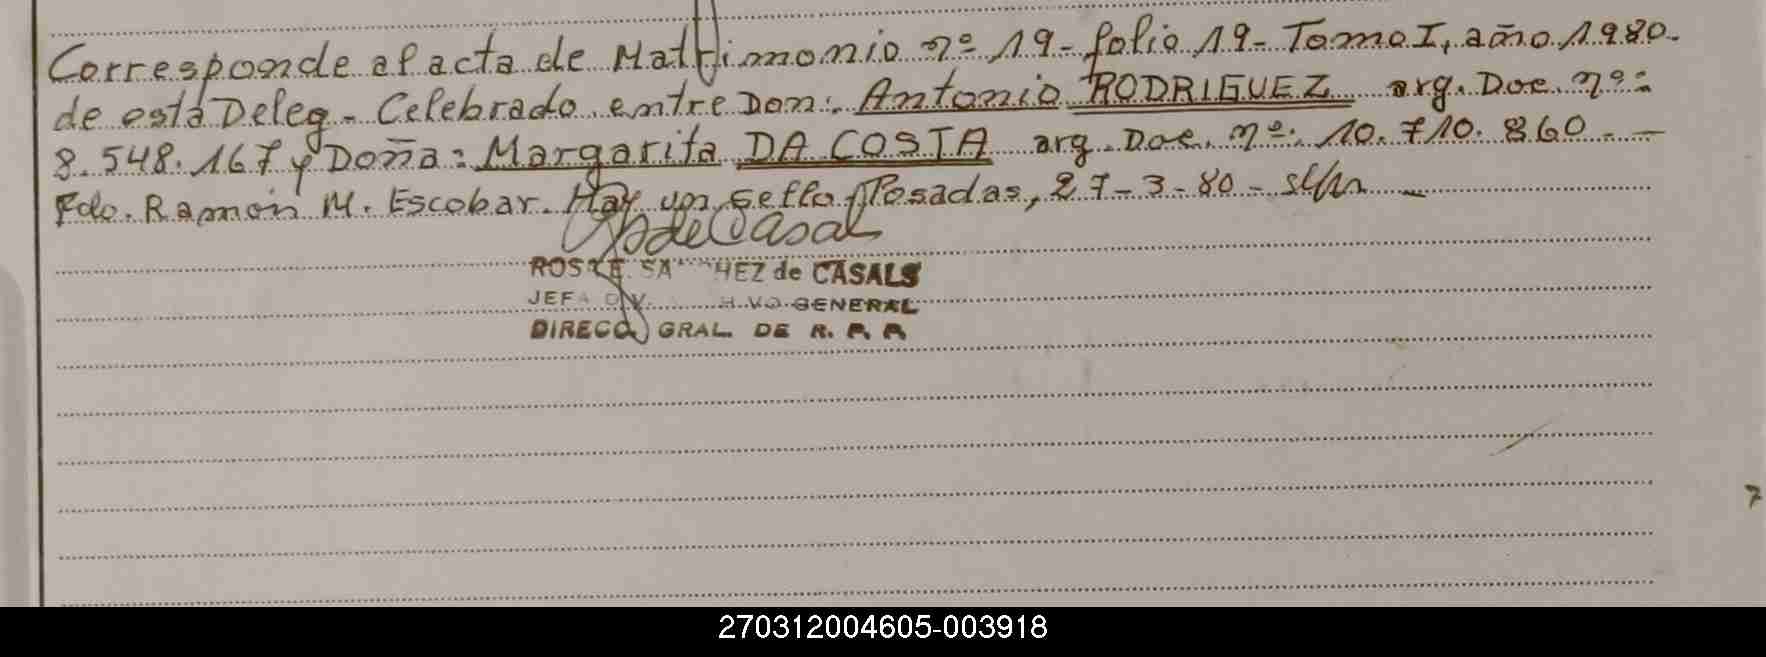 Corresponde al acta de Matrimonio nº 19- folio 19- Tomo I, año 1980.
de esta Deleg- Celebrado entre Don: Antonio RODRIGUEZ arg. Doc. nº:
8.548.167 y Doña: Margarita DA COSTA arg. Doc. nº: 10.710.860. —
Fdo. Ramón M. Escobar. Hay un sello. Posadas, 27-3-80-
de Casals
HEZ de CASALS
JEF GENERAL
GRAL. DE R.
7
270312004605-003918